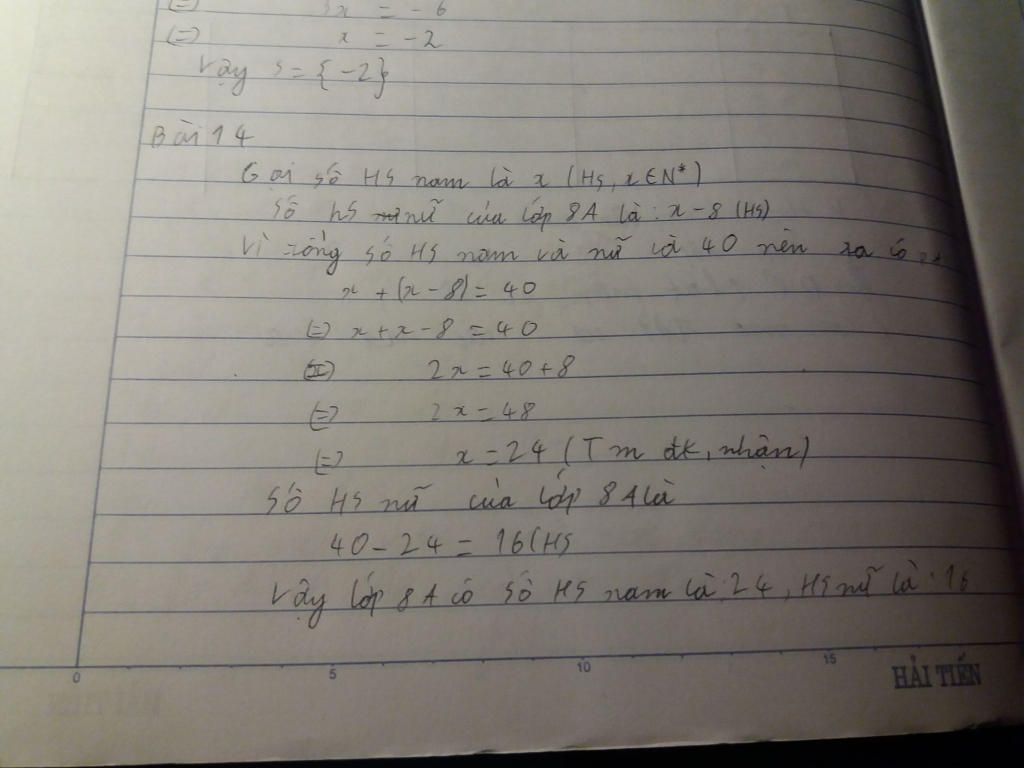 (=) 3x = -6
(=) x = -2
Vậy S = {-2}
Bài 14
Gọi số HS nam là x (HS, x ∈ N*)
Số hs nữ của lớp 8A là: x - 8 (HS)
Vì tổng số HS nam và nữ là 40 nên ta có:
x + (x - 8) = 40
(=) x + x - 8 = 40
(=) 2x = 40 + 8
(=) 2x = 48
(=) x = 24 (Tm đk, nhận)
Số HS nữ của lớp 8A là
40 - 24 = 16(HS
Vậy lớp 8A có số HS nam là: 24, HS nữ là: 16
0 5 10 15
HẢI TIẾN